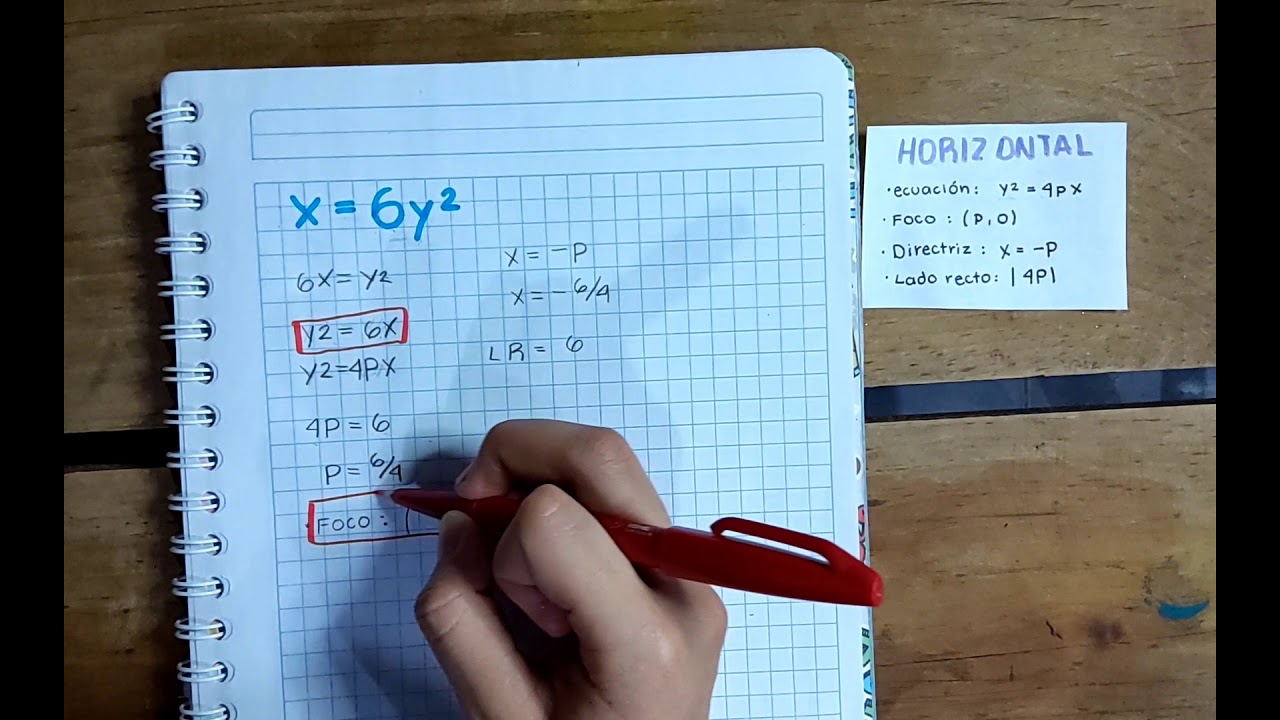 x = 6y²
6X = Y2
Y2 = 6X
Y2=4PX
4P = 6
P = 6/4
FOCO : (
X = -P
X = - 6/4
LR = 6
HORIZONTAL
· ecuación: Y² = 4PX
· FOCO : (P,0)
· Directriz : X = -P
· Lado recto: |4P|